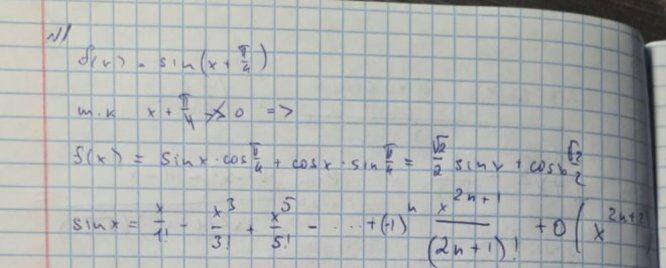 №1
f(x) = sin(x + π/4)
т.к x + π/4 ↛ 0 =>
f(x) = sinx · cos π/4 + cosx · sin π/4 = √2/2 sinx + cosx √2/2
sinx = x/1! - x³/3! + x⁵/5! - ... + (-1)ⁿ x²ⁿ⁺¹/(2n+1)! + O(x²ⁿ⁺²)